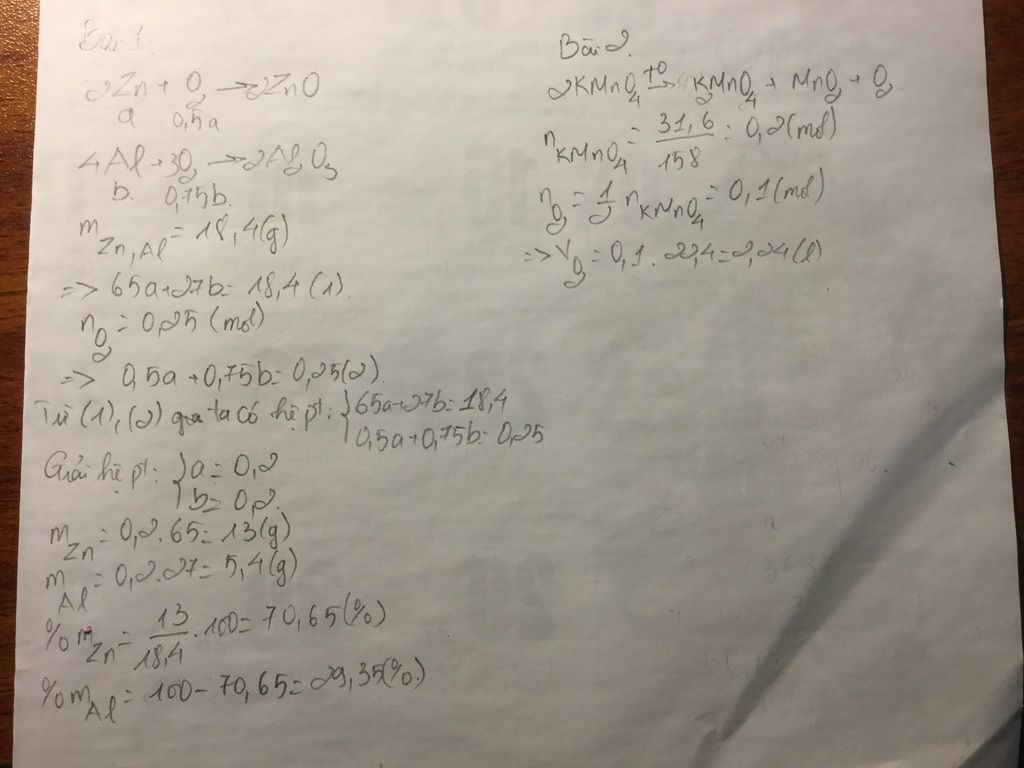 Bài 1.
2Zn + O₂ → 2ZnO
a 0,5a
4Al + 3O₂ → 2Al₂O₃
b. 0,75b.
m Zn,Al = 18,4(g)
=> 65a+27b = 18,4 (1).
n O₂ = 0,25 (mol)
=> 0,5a + 0,75b = 0,25(2).
Từ (1), (2) qua ta có hệ pt: { 65a+27b = 18,4
0,5a+0,75b = 0,25
Giải hệ pt: { a = 0,2
b = 0,2.
m Zn = 0,2.65 = 13(g)
m Al = 0,2.27 = 5,4(g)
%m Zn = 13/18,4 .100 = 70,65(%)
%m Al = 100 - 70,65 = 29,35(%)
Bài 2.
2KMnO₄ t° → K₂MnO₄ + MnO₂ + O₂
n KMnO₄ = 31,6/158 = 0,2(mol)
n O₂ = 1/2 n KMnO₄ = 0,1(mol)
=> V O₂ = 0,1.22,4 = 2,24(l)